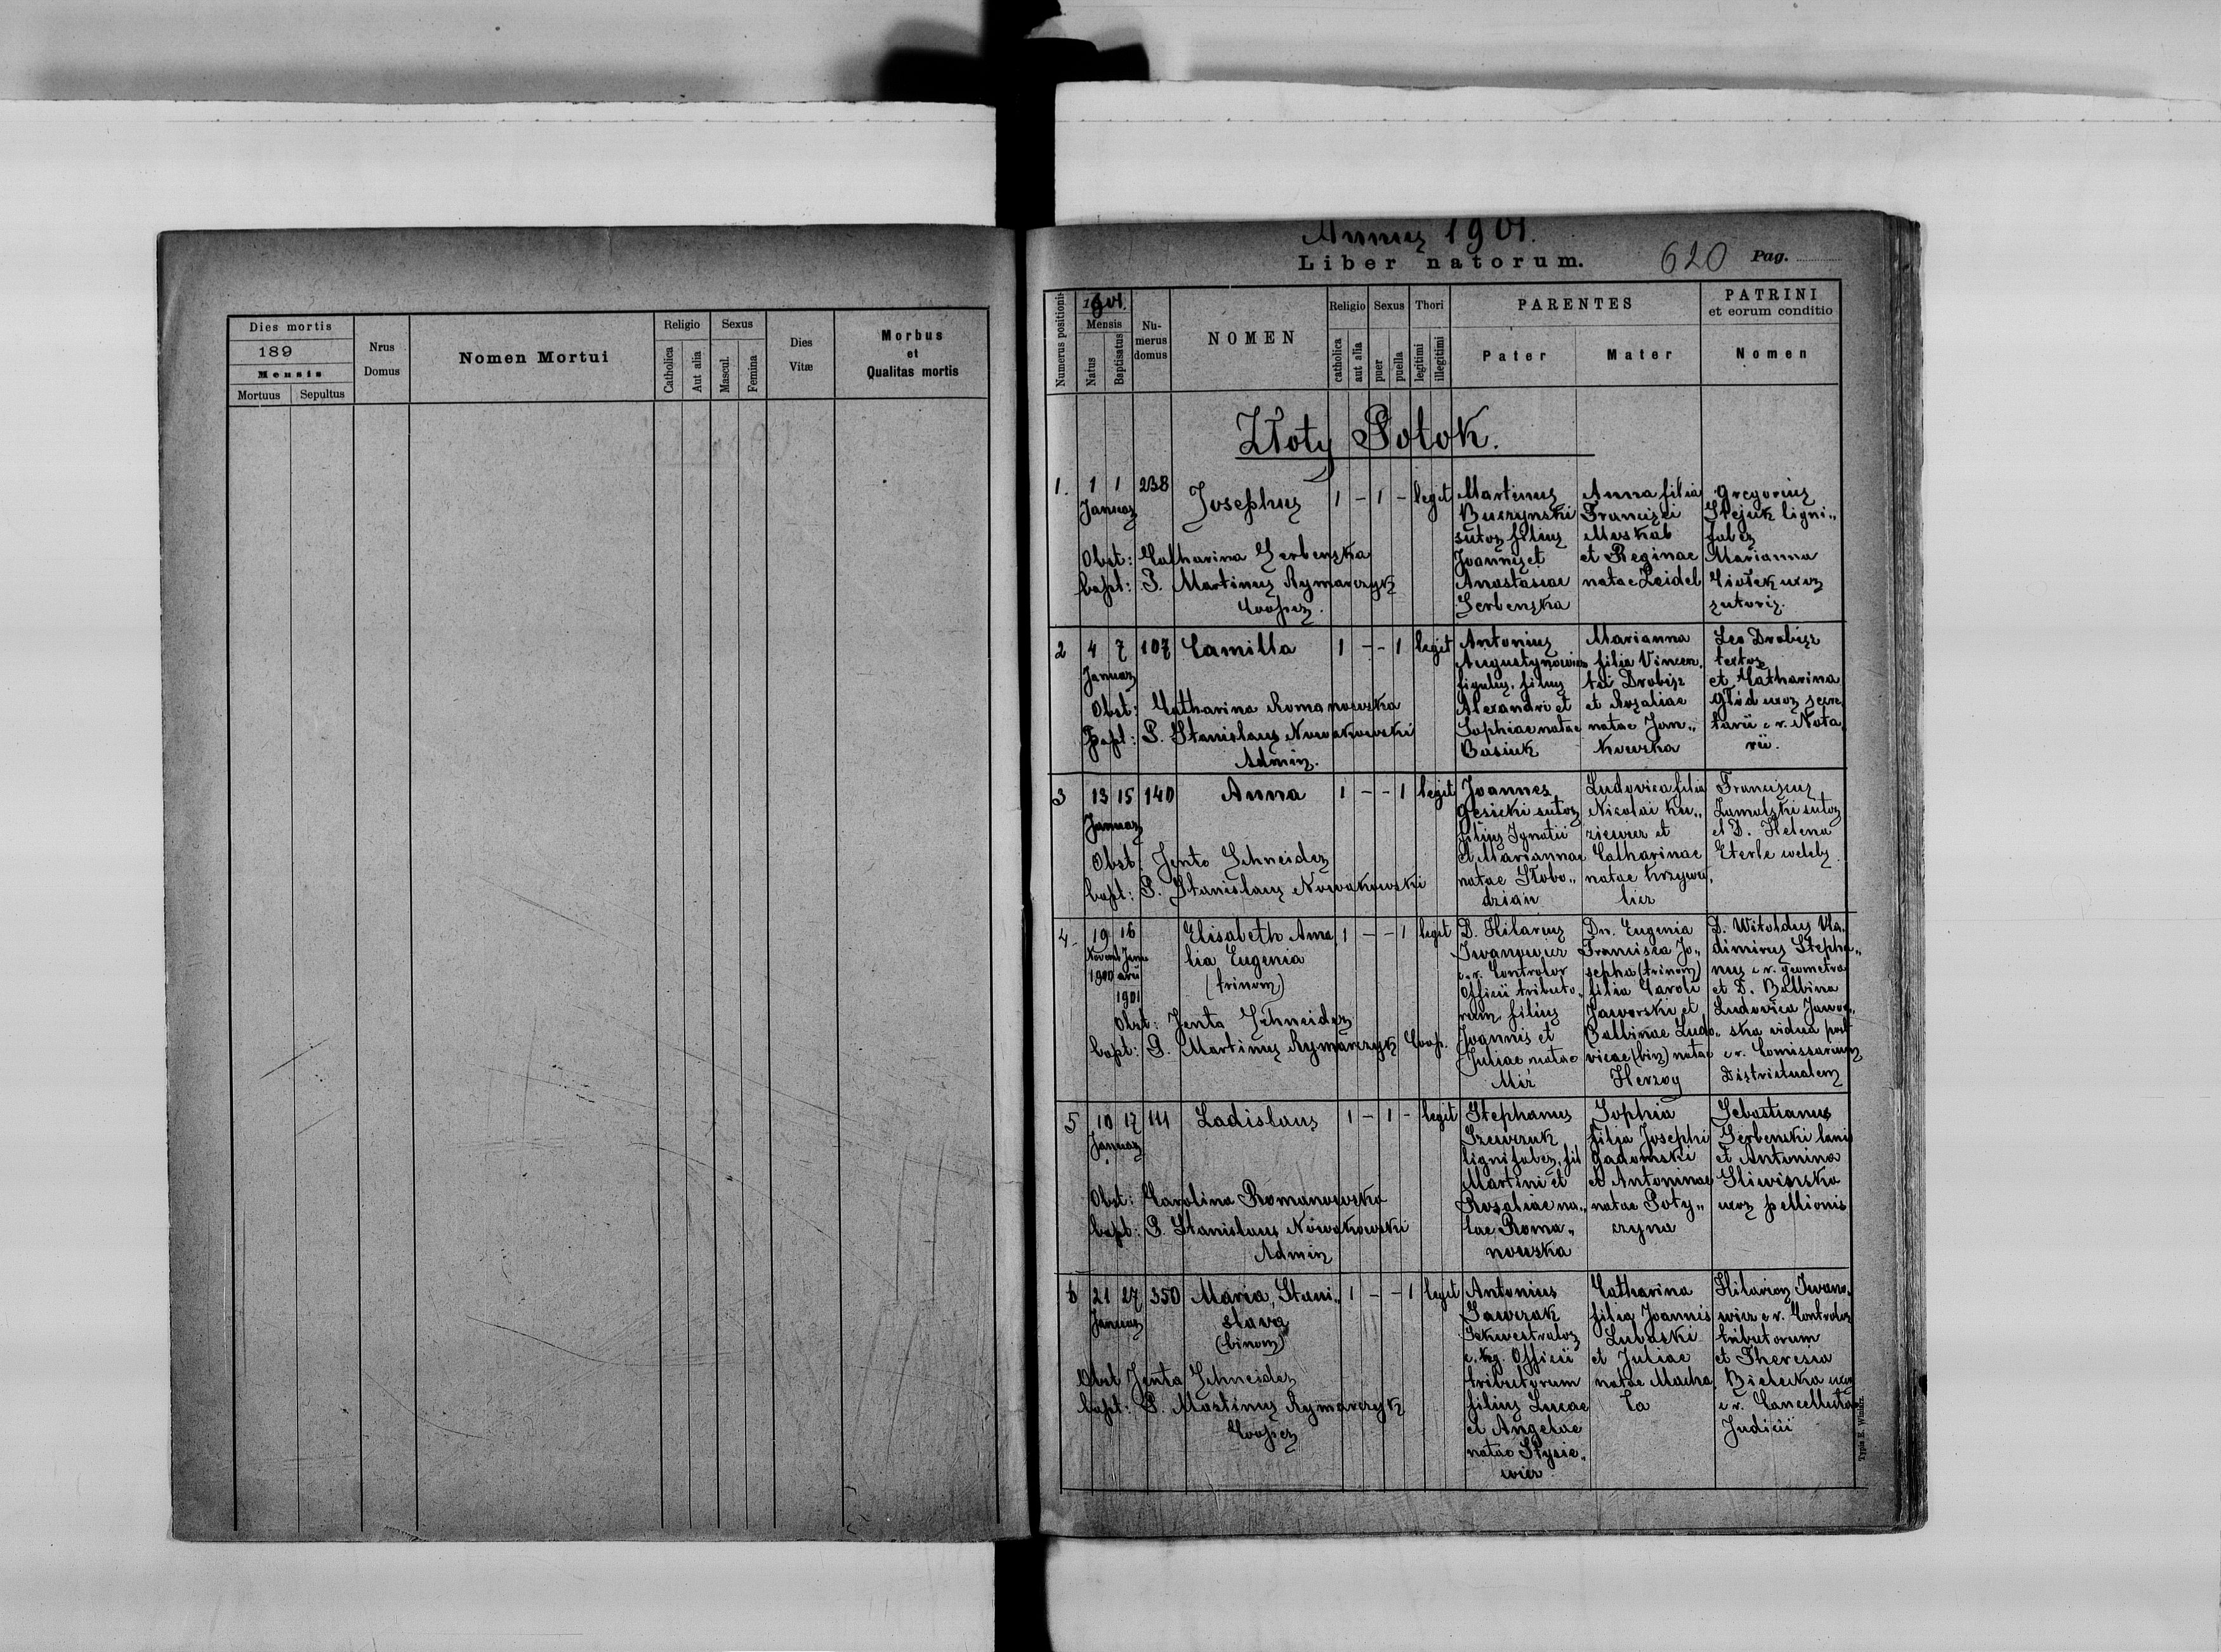 Dies mortis
189
Mensis
Mortuus Sepultus
Nrus
Domus
Nomen Mortui
Religio
Catholica
Aut alia
Sexus
Mascul.
Femina
Dies
Vitæ
Morbus
et
Qualitas mortis
Annus 1901.
Liber natorum. 620 Pag.
Numerus positionis
1901.
Mensis
Natus
Baptisatus
Nu-
merus
domus
NOMEN
Religio
catholica
aut alia
Sexus
puer
puella
Thori
legitimi
illegitimi
PARENTES
Pater
Mater
PATRINI
et eorum conditio
Nomen
Złoty Potok.
1. 1 1 238
Januar
Josephus 1 - 1 - legit
Obst: Catharina Serbenska
bapt: P. Martinus Rymarczyk
Cooper.
Martinus
Buczynski
sutor filius
Joannis et
Anastasiae
Serbenska
Anna filia
Francisci
Muskab
et Reginae
natae Zeidel
Gregorius
Stejuk ligni„
faber
Marianna
Ciołek uxor
sutoris.
2 4 7 107 Camilla 1 - - 1 legit
Januar
Obst: Catharina Romanowska
Bapt: P. Stanislaus Nowakowski
Admin.
Antonius
Augustynowicz
figulus, filius
Alexandri et
Sophiae natae
Basiuk
Marianna
filia Vincen„
tii Drobisz
et Rosaliae
natae Jan„
kowska
Leo Drobisz
textor
et Catharina
Głód uxor secre
tarii c. r. Nota
rii.
3 13 15 140 Anna 1 - - 1 legit
Januar
Obst: Jenta Schneider
bapt: P. Stanislaus Nowakowski
Joannes
Gęsicki sutor
filius Ignatii
et Mariannae
natae Słobo„
dzian
Ludovica filia
Nicolai Ku„
ziewicz et
Catharinae
natae Krzywu„
licz
Franciscus
Zamulski sutor
et D. Helena
Eterle coelebs.
4. 19 16
Novemb Janu
1900 arii
1901
Elisabeth Ama
lia Eugenia
(trinom)
1 - - 1 legit
Obst: Jenta Schneider
bapt: P. Martinus Rymarczyk Coop.
D. Hilarius
Iwanowicz
c. r. Controlor
Officii tributo„
rum filius
Joannis et
Juliae natae
Mir
Dn. Eugenia
Francisca Jo„
sepha (trinom)
filia Caroli
Jaworski et
Balbinae Ludo„
vicae (bin) natae
Herzog
D. Witoldus Vla„
dimirus Stepha„
nus c. r. geometra
et D. Balbina
Ludovica Jawor„
ska vidua post
c. r. Comissarium
Districtualem
5 10 17 111 Ladislaus 1 - 1 - legit
Januar
Obst: Carolina Romanowska
bapt: P. Stanislaus Nowakowski
Admin
Stephanus
Szewczuk
lignifaber, fil
Martini et
Rosaliae na„
tae Roma„
nowska
Sophia
filia Josephi
Gadomski
et Antoninae
natae Poty„
czyna
Sebastianus
Serbenski lanio
et Antonina
Sliwinska
uxor pellionis
6 21 27 350 Maria, Stani„ 1 - - 1 legit
Januar
slava
(binom)
Obst Jenta Schneider
bapt: P. Martinus Rymarczyk
Cooper
Antonius
Sawczak
Sekwestrator
Officii
tributorum
filius Lucae
et Angelae
natae Stysie„
wicz
Catharina
filia Joannis
Lubaski
et Juliae
natae Macha„
ła
Hilarion Iwano„
wicz c. r. Controlor
tributorum
et Theresia
Bielecka uxor
c. r. Cancellista
Judicii
Typis E. Winiarz.